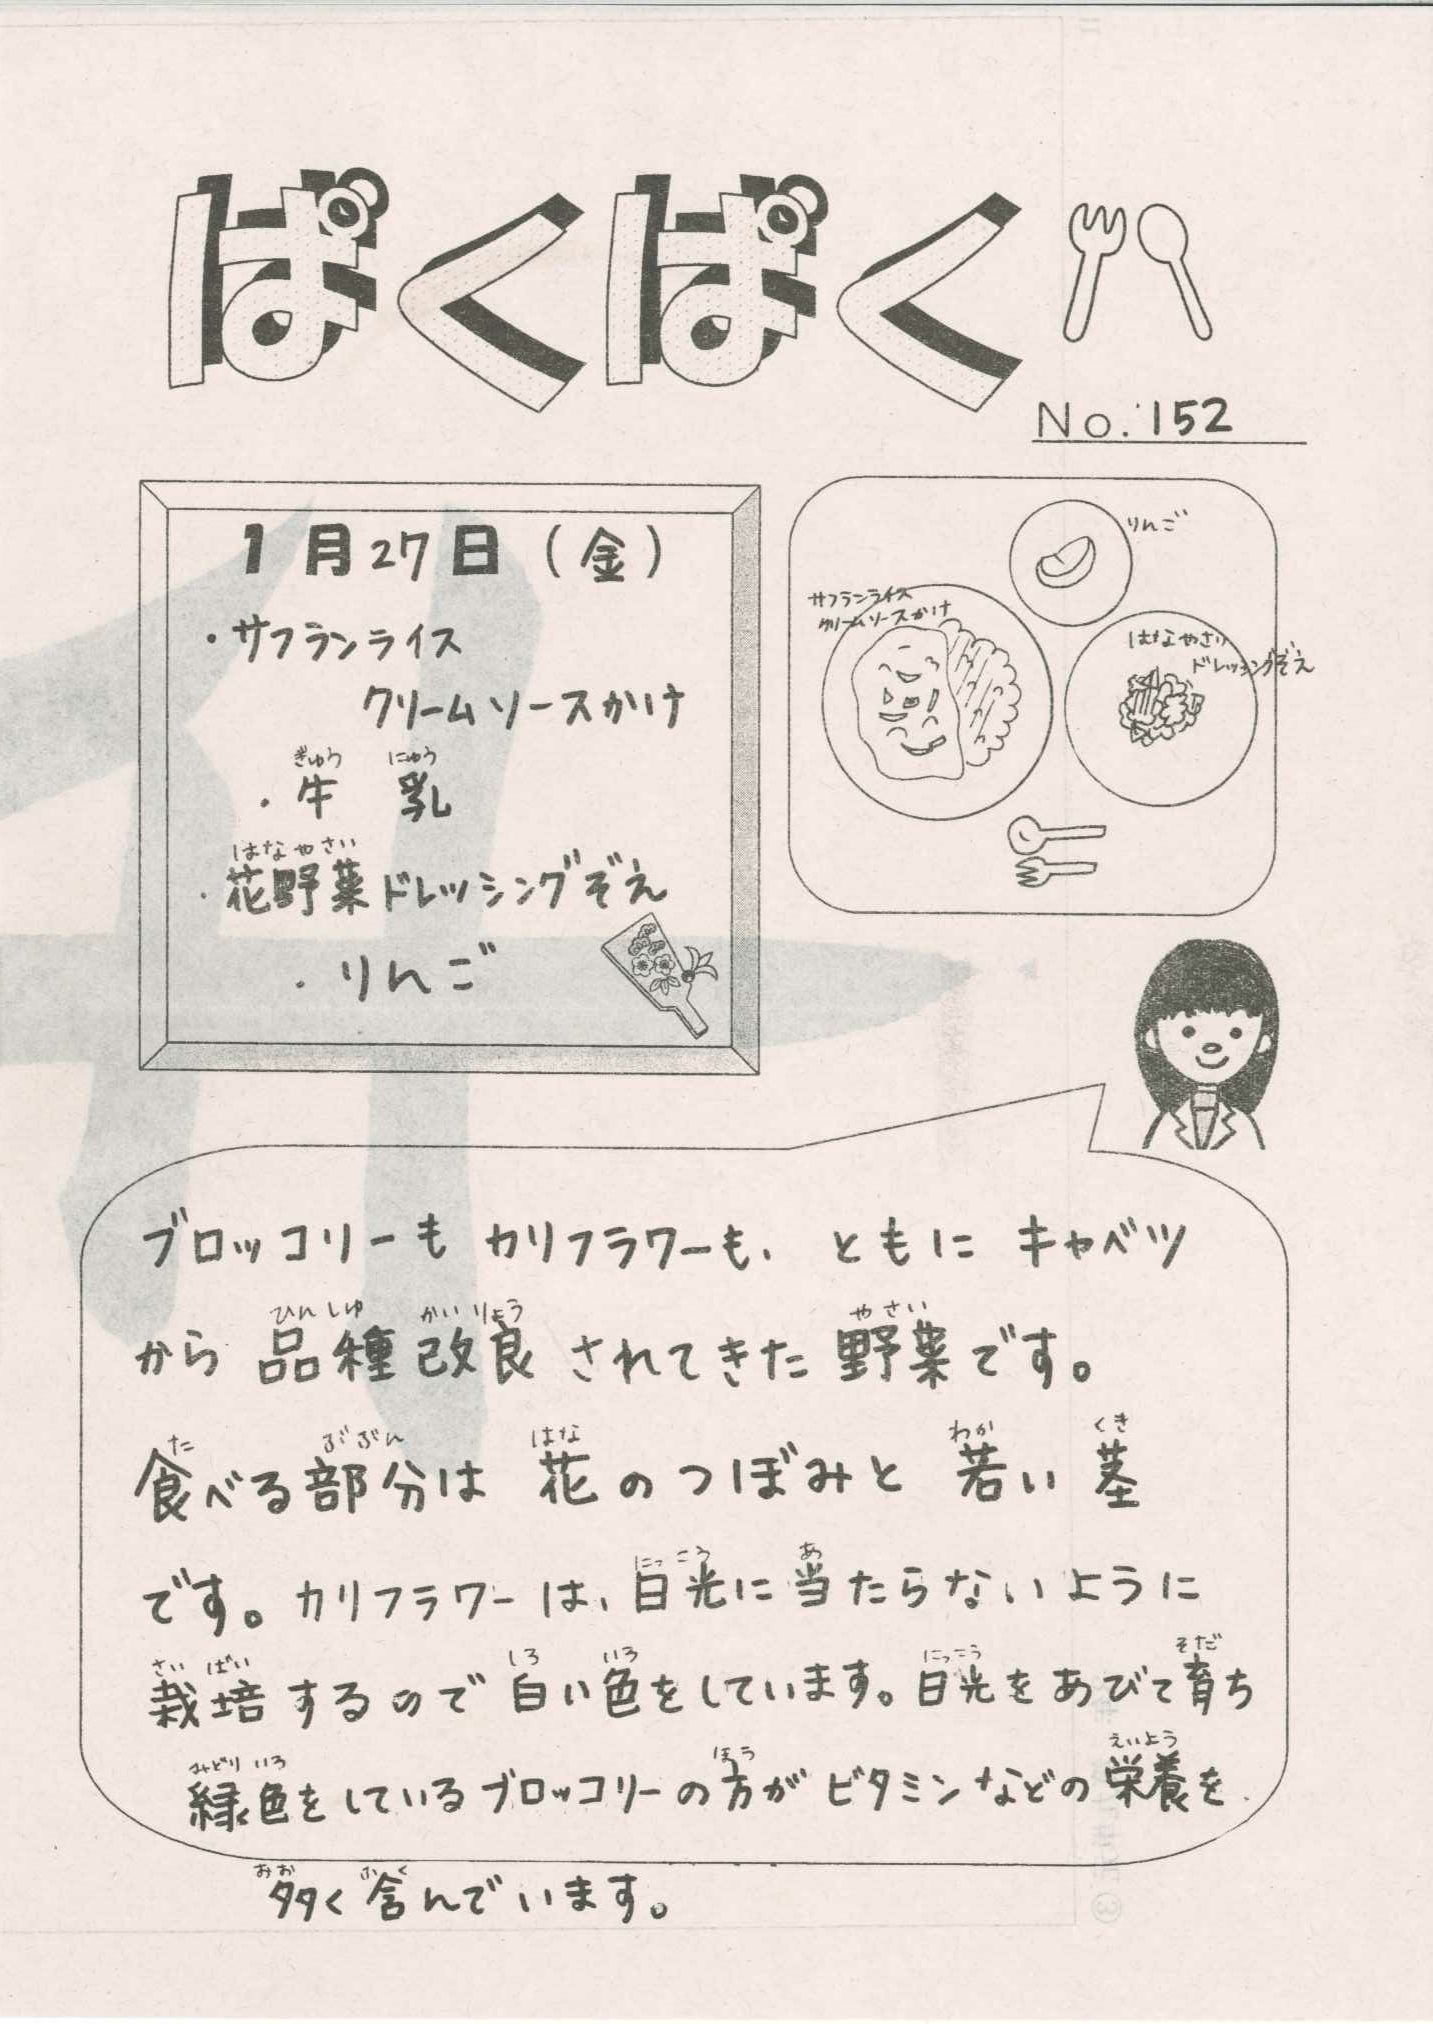 ぱくぱく
No. 152
1月27日(金)
・サフランライス
クリームソースかけ
ぎゅう にゅう
・牛 乳
はなやさい
・花野菜ドレッシングぞえ
・りんご
りんご
サフランライス
クリームソースかけ
はなやさい
ドレッシングぞえ
ブロッコリーも カリフラワーも、ともに キャベツ
ひんしゅ かいりょう やさい
から 品種改良 されてきた 野菜です。
た ぶぶん はな わか くき
食べる部分は 花のつぼみと 若い 茎
にっこう あ
です。カリフラワーは、日光に当たらないように
さいばい しろ いろ にっこう そだ
栽培するので 白い色をしています。日光をあびて育ち
みどりいろ ほう えいよう
緑色をしているブロッコリーの方がビタミンなどの栄養を
おお ふく
多く含んでいます。